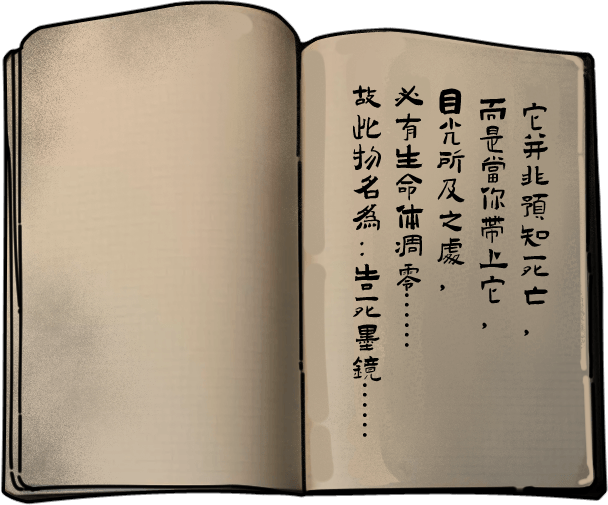 它并非預知死亡，
而是當你帶上它，
目光所及之處，
必有生命体凋零……
故此物名為：告死墨鏡……